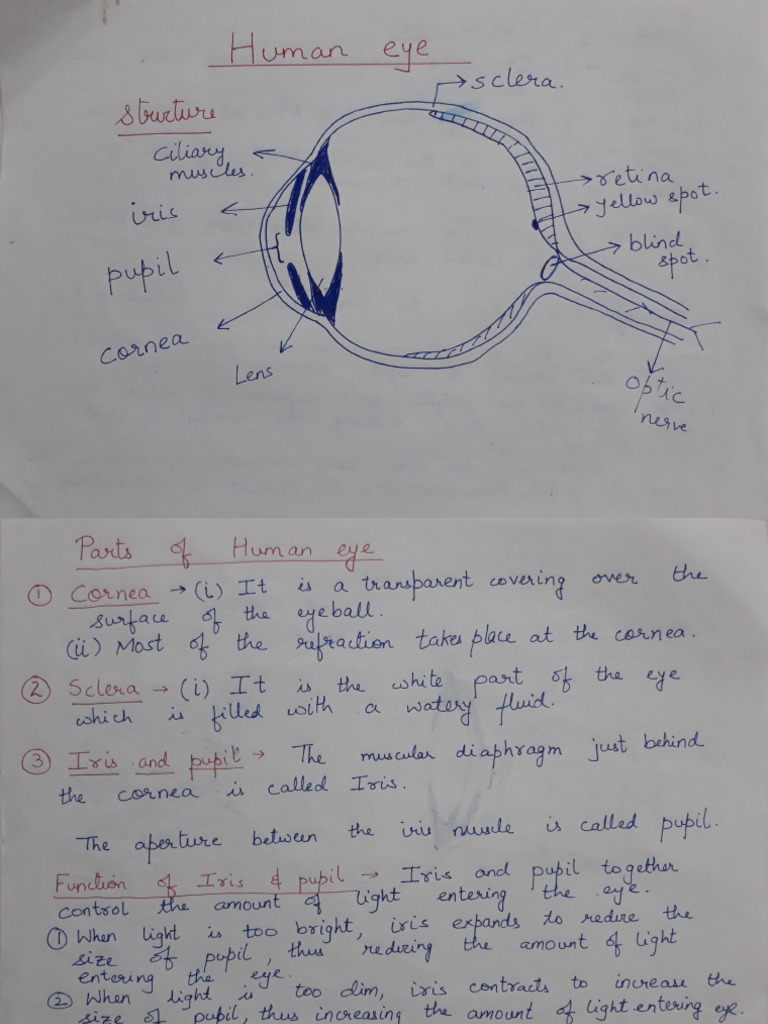 Human eye
Struture
sclera.
Ciliary
muscles.
iris
pupil
cornea
Lens
retina
yellow spot.
blind
spot.
Optic
nerve
Parts of Human eye
① Cornea → (i) It is a transparent covering over the
surface of the eyeball.
(ii) Most of the refraction takes place at the cornea.
② Sclera → (i) It is the white part of the eye
which is filled with a watery fluid.
③ Iris and pupil → The muscular diaphragm just behind
the cornea is called Iris.
The aperture between the iris muscle is called pupil.
Function of Iris & pupil → Iris and pupil together
control the amount of light entering the eye.
① When light is too bright, iris expands to redue the
size of pupil, thus reduing the amount of light
entering the eye.
② When light is too dim, iris contracts to increase the
size of pupil, thus increasing the amount of light entering eye.